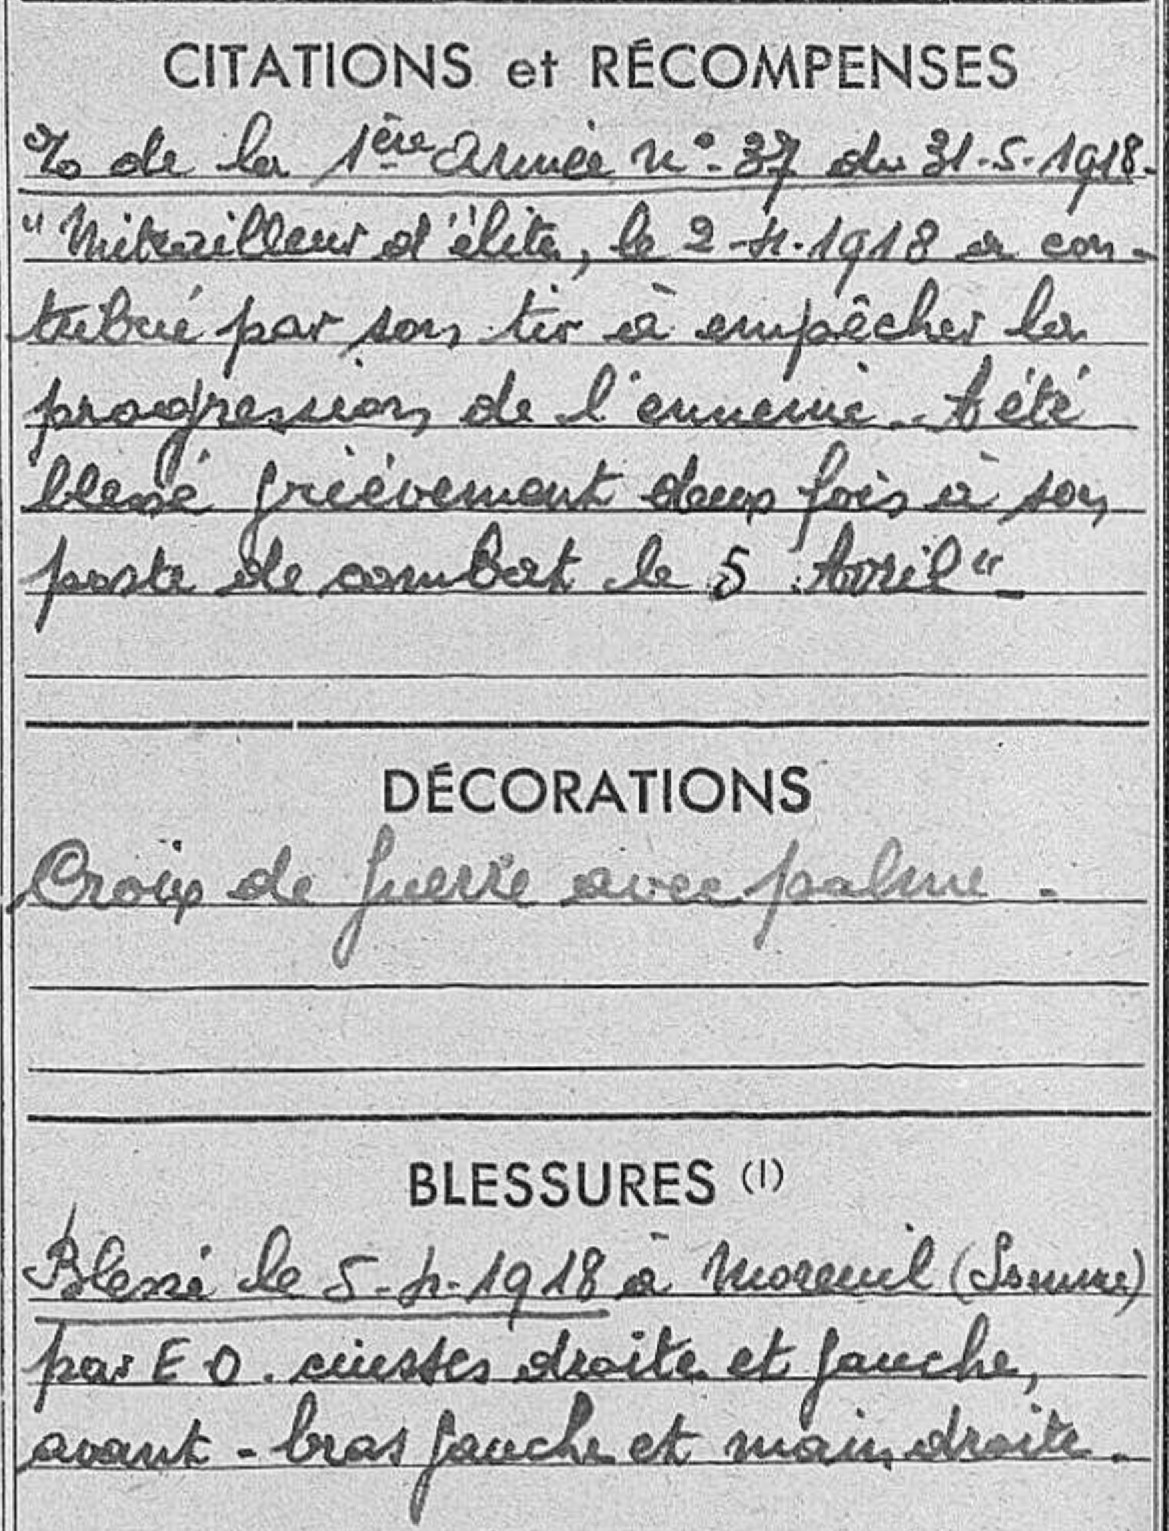 CITATIONS et RÉCOMPENSES
de la 1ère Armée n° 37 du 31-5-1918.
"Mitrailleur d'élite, le 2-4-1918 a con-
tribué par son tir à empêcher la
progression de l'ennemi. A été
blessé grièvement deux fois à son
poste de combat le 5 Avril"
DÉCORATIONS
Croix de guerre avec palme.
BLESSURES (1)
Blessé le 5-4-1918 à Moreuil (Somme)
par E.O. cuisses droite et gauche,
avant-bras gauche et main droite.